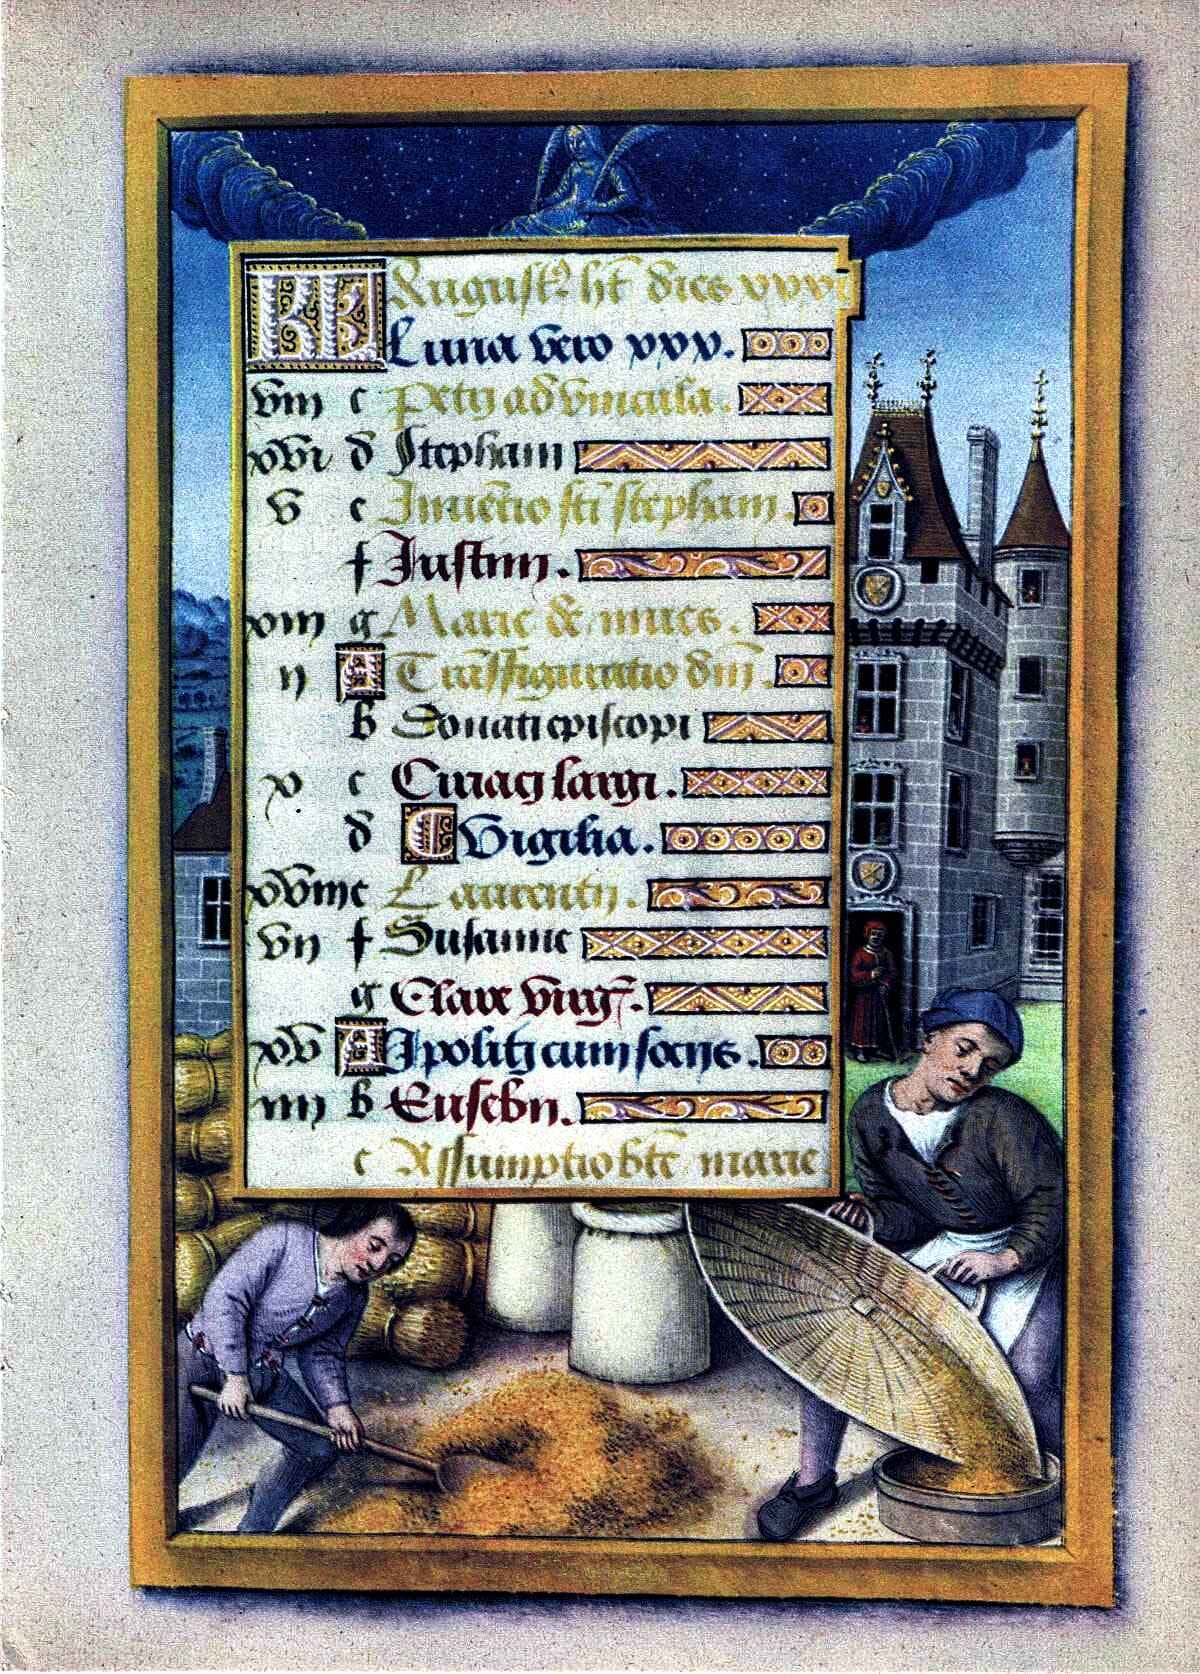 KL Augustꝰ hꝫt dies xxxi
Luna vero xxx.
viii c Petri ad vincula.
xvi d Stephani
v e Inuẽtio sc̃i stephani.
f Iustini.
xiii g Marie &
ii A Trãsfiguratio dñi.
b Donati episcopi
x c Ciriaci largi.
d Vigilia.
xviii e Laurentii.
vii f Susanne
g Clare virgĩs.
xv A Ipoliti cum sociis.
iiii b Eusebii.
c Assumptio btẽ marie